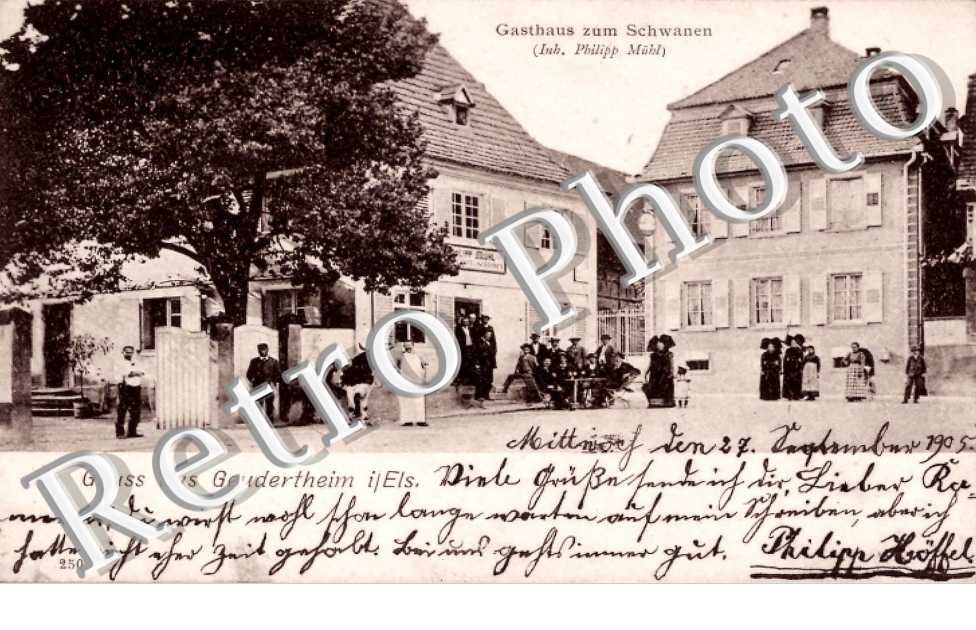 Gasthaus zum Schwanen
(Inh. Philipp Mühl)
Retro Photo
Mittwoch den 27. September 1905.
Gruss aus Geudertheim i/Els.
Viele Grüße sende ich dir, Lieber
du wirst wohl schon lange warten auf mein Schreiben, aber ich
hatte nicht eher Zeit gehabt. Bei uns gehts immer gut. Philipp Höffel.
250